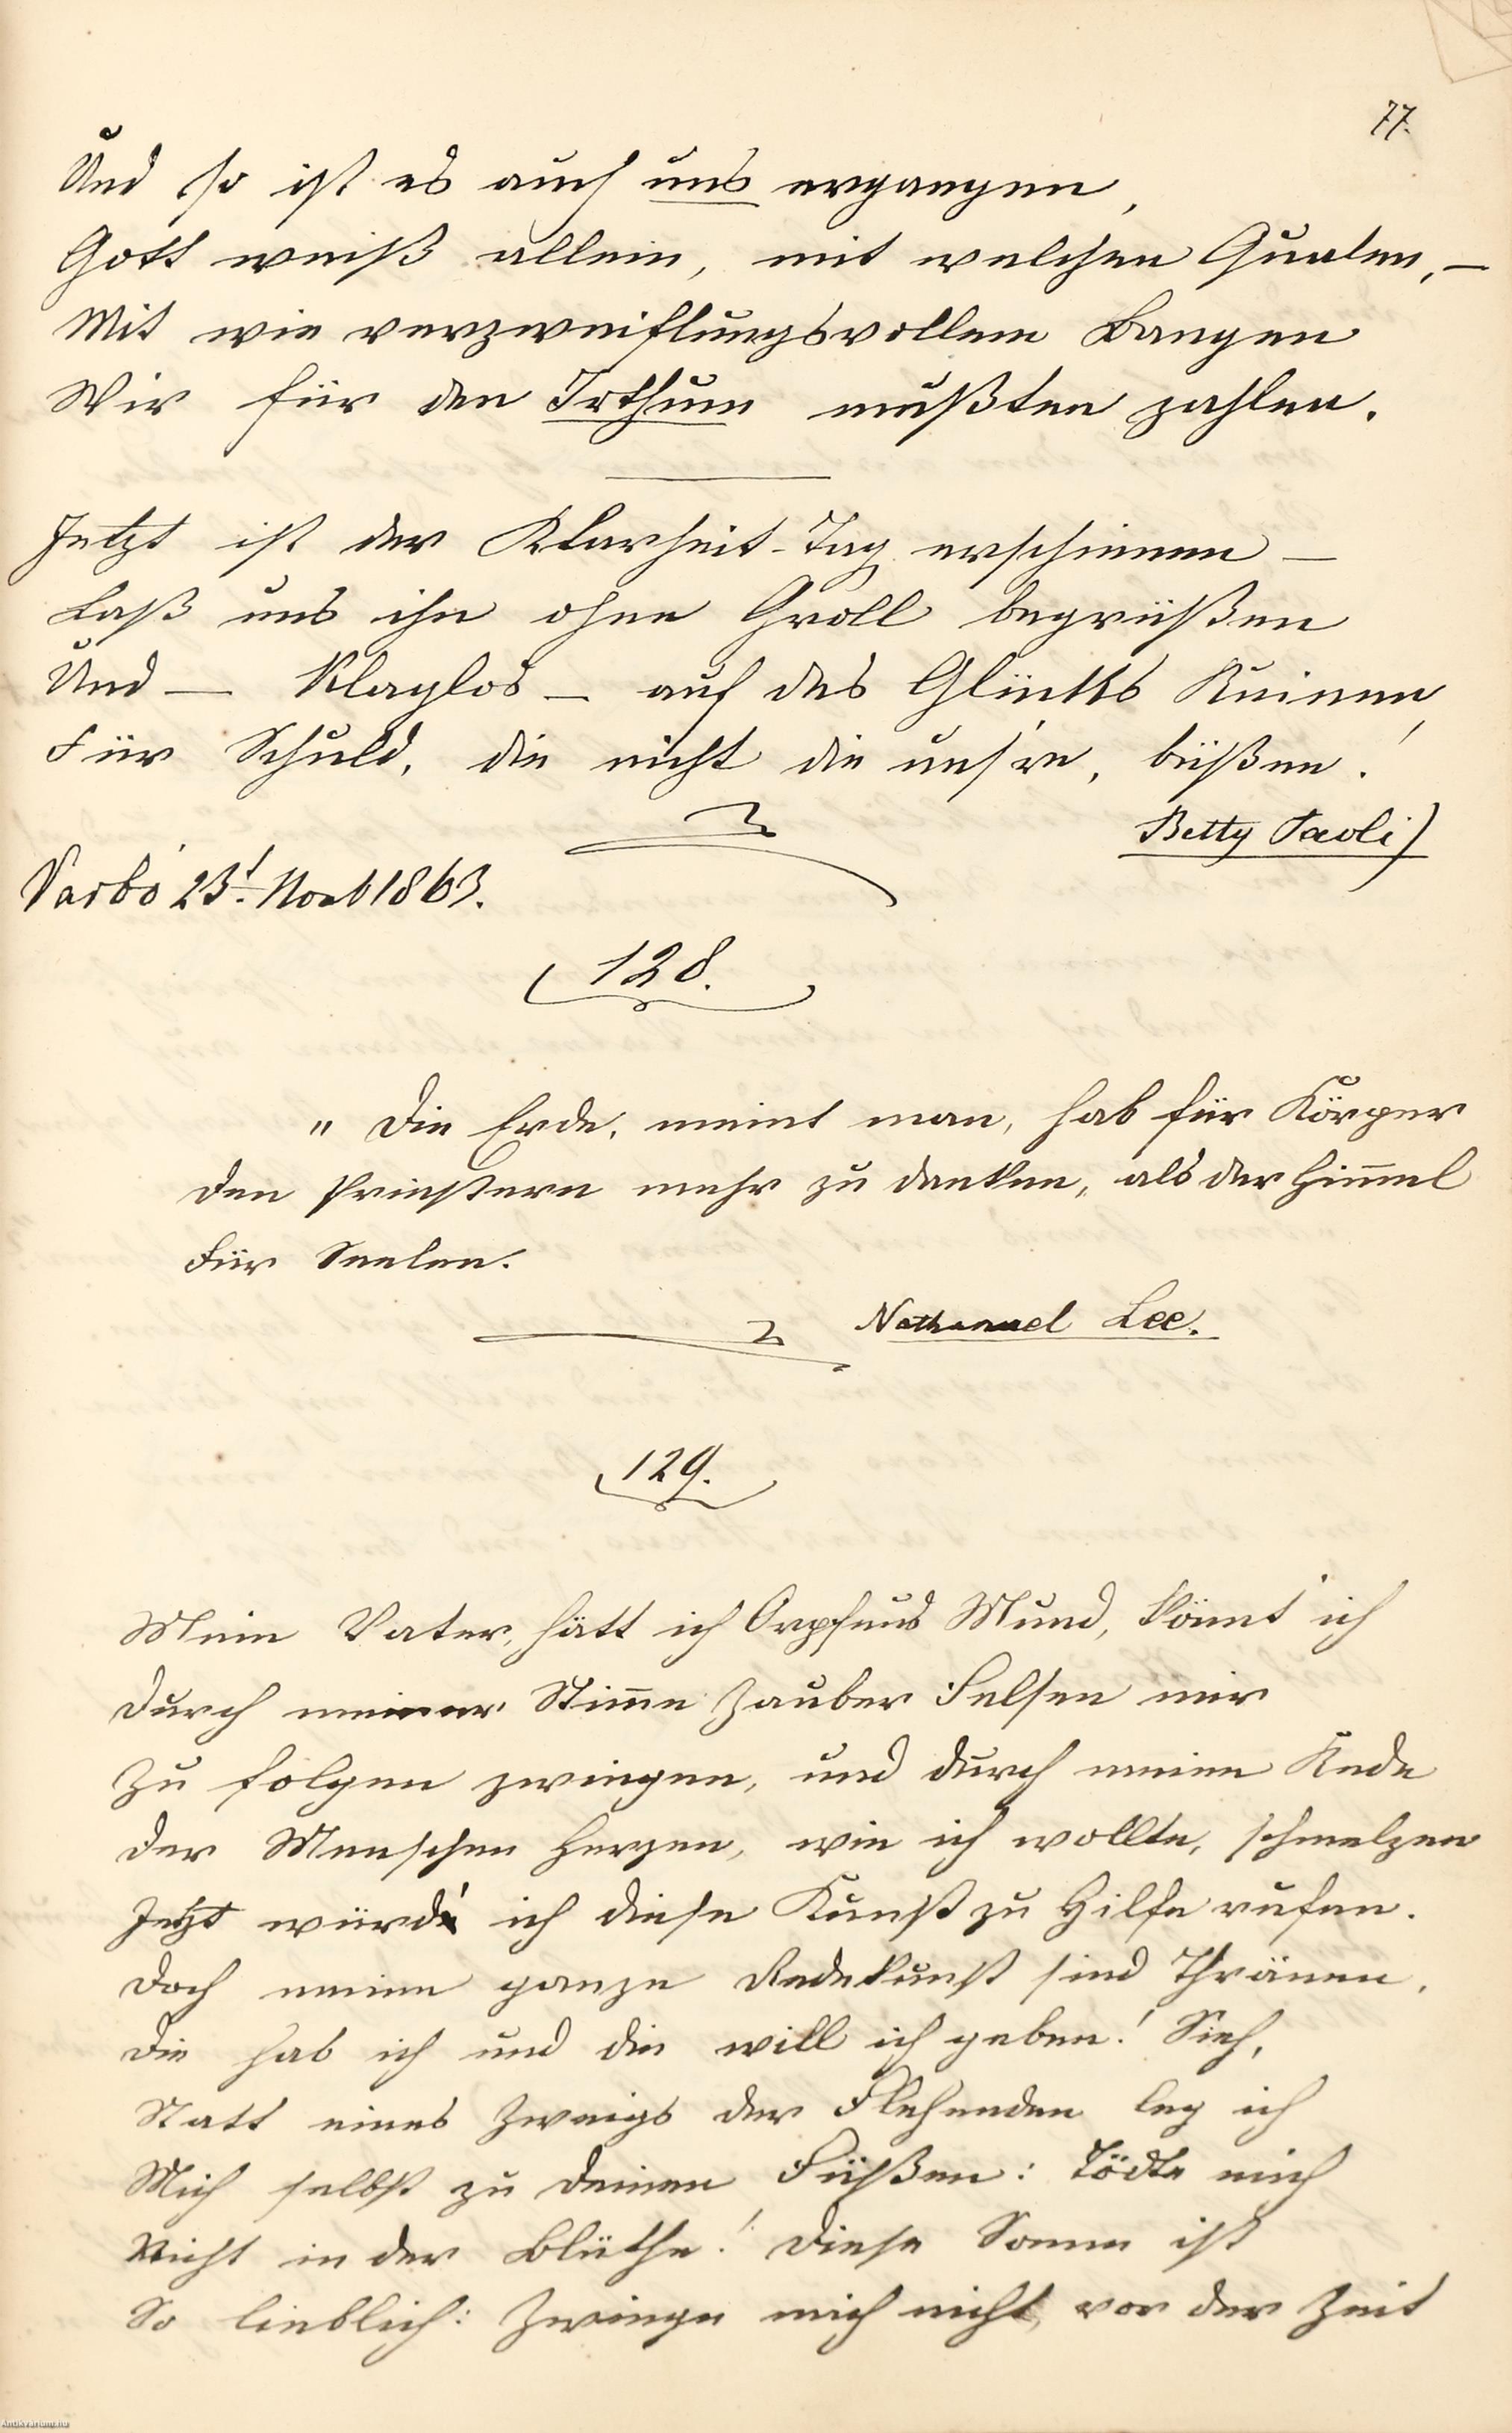 77.
Und so ist es auch uns ergangen,
Gott weiß allein, mit welchen Qualen, —
Mit wie verzweiflungsvollem Bangen
Wir für den Irthum mußten zahlen.
Jetzt ist der Klarheit-Tag erschienen —
Laß uns ihn ohne Groll begrüßen
Und — klaglos — auf des Glückes Ruinen
Für Schuld, die nicht die uns're, büßen!
Betty Paoli)
Varbó 23t. Novb 1863.
128.
" Die Erde, meint man, hab für Körper
den Priestern mehr zu danken, als der Him̅el
für Seelen.
Nathanael Lee.
129.
Mein Vater, hätt ich Orpheus Mund, könnt' ich
durch meiner Stim̅e Zauber Felsen mir
zu folgen zwingen, und durch meine Rede
der Menschen Herzen, wie ich wollte, schmelzen
Jetzt würd' ich diese Kunst zu Hilfe rufen.
doch meine ganze Redekunst sind Thränen,
die hab ich und die will ich geben! Sieh,
Statt eines Zweigs der Flehenden leg ich
Mich selbst zu deinen Füßen: Tödte mich
Nicht in der Blüthe! diese Sonne ist
So lieblich: Zwinge mich nicht, vor der Zeit
Antikvarium.hu